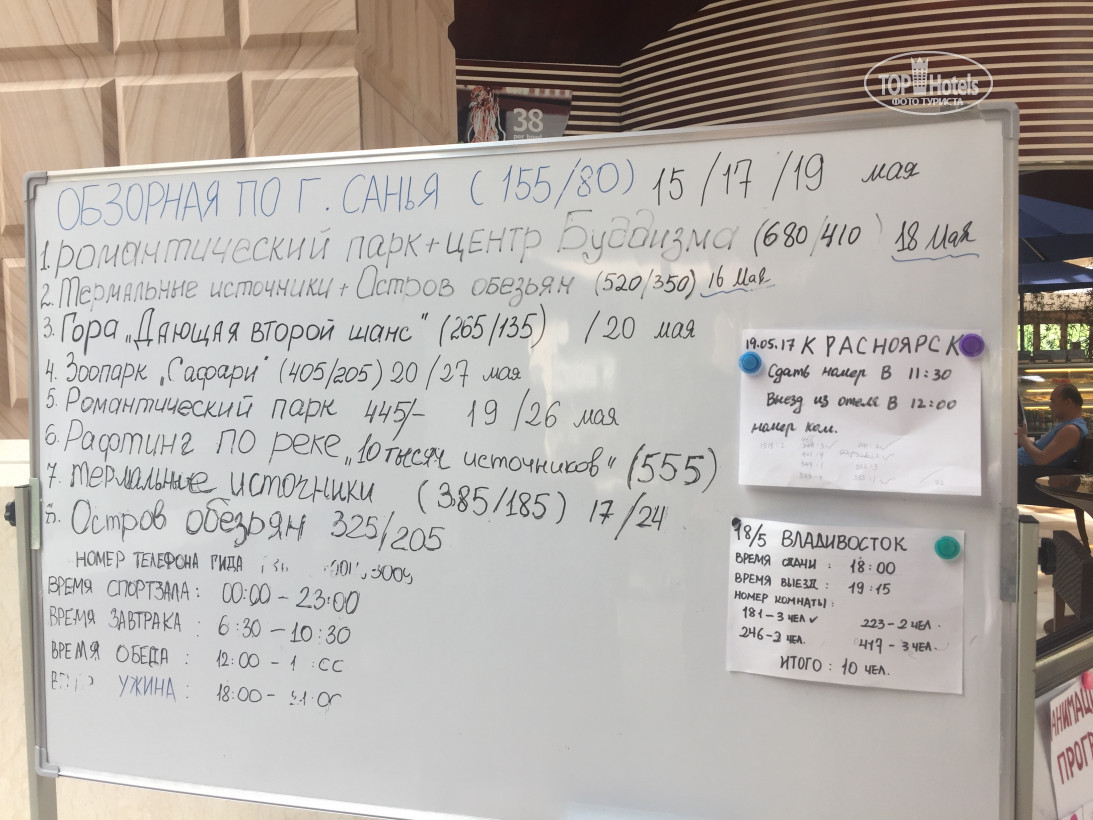 TOP Hotels
ФОТО ТУРИСТА
38
ОБЗОРНАЯ ПО Г. САНЬЯ (155/80) 15/17/19 мая
1. РОМАНТИЧЕСКИЙ ПАРК+ЦЕНТР Буддизма (680/410) 18 Мая
2. Термальные источники + Остров обезьян (520/350) 16 Мая
3. Гора „Дающая второй шанс" (265/135) /20 мая
4. Зоопарк „Сафари" (405/205) 20/27 мая
5. Романтический парк 445/- 19/26 мая
6. Рафтинг по реке „10 тысяч источников" (555)
7. термальные источники (385/185) 17/24
Остров обезрян 325/205
НОМЕР ТЕЛЕФОНА ГИДА
ВРЕМЯ СПОРТЗАЛА: 00:00 - 23:00
ВРЕМЯ ЗАВТРАКА : 6:30 - 10:30
ВРЕМЯ ОБЕДА : 12:00 -
УЖИНА : 18:00 -
19.05.17 КРАСНОЯРСК
Сдать номер в 11:30
Выезд из отеля в 12:00
номер ком.
18/5 ВЛАДИВОСТОК
ВРЕМЯ СДАЧИ : 18:00
ВРЕМЯ ВЫЕЗД : 19:15
НОМЕР КОМНАТЫ:
181-3 ЧЕЛ ✓ 223-2 ЧЕЛ.
246-2 ЧЕЛ. 417-3 ЧЕЛ.
ИТОГО : 10 ЧЕЛ.